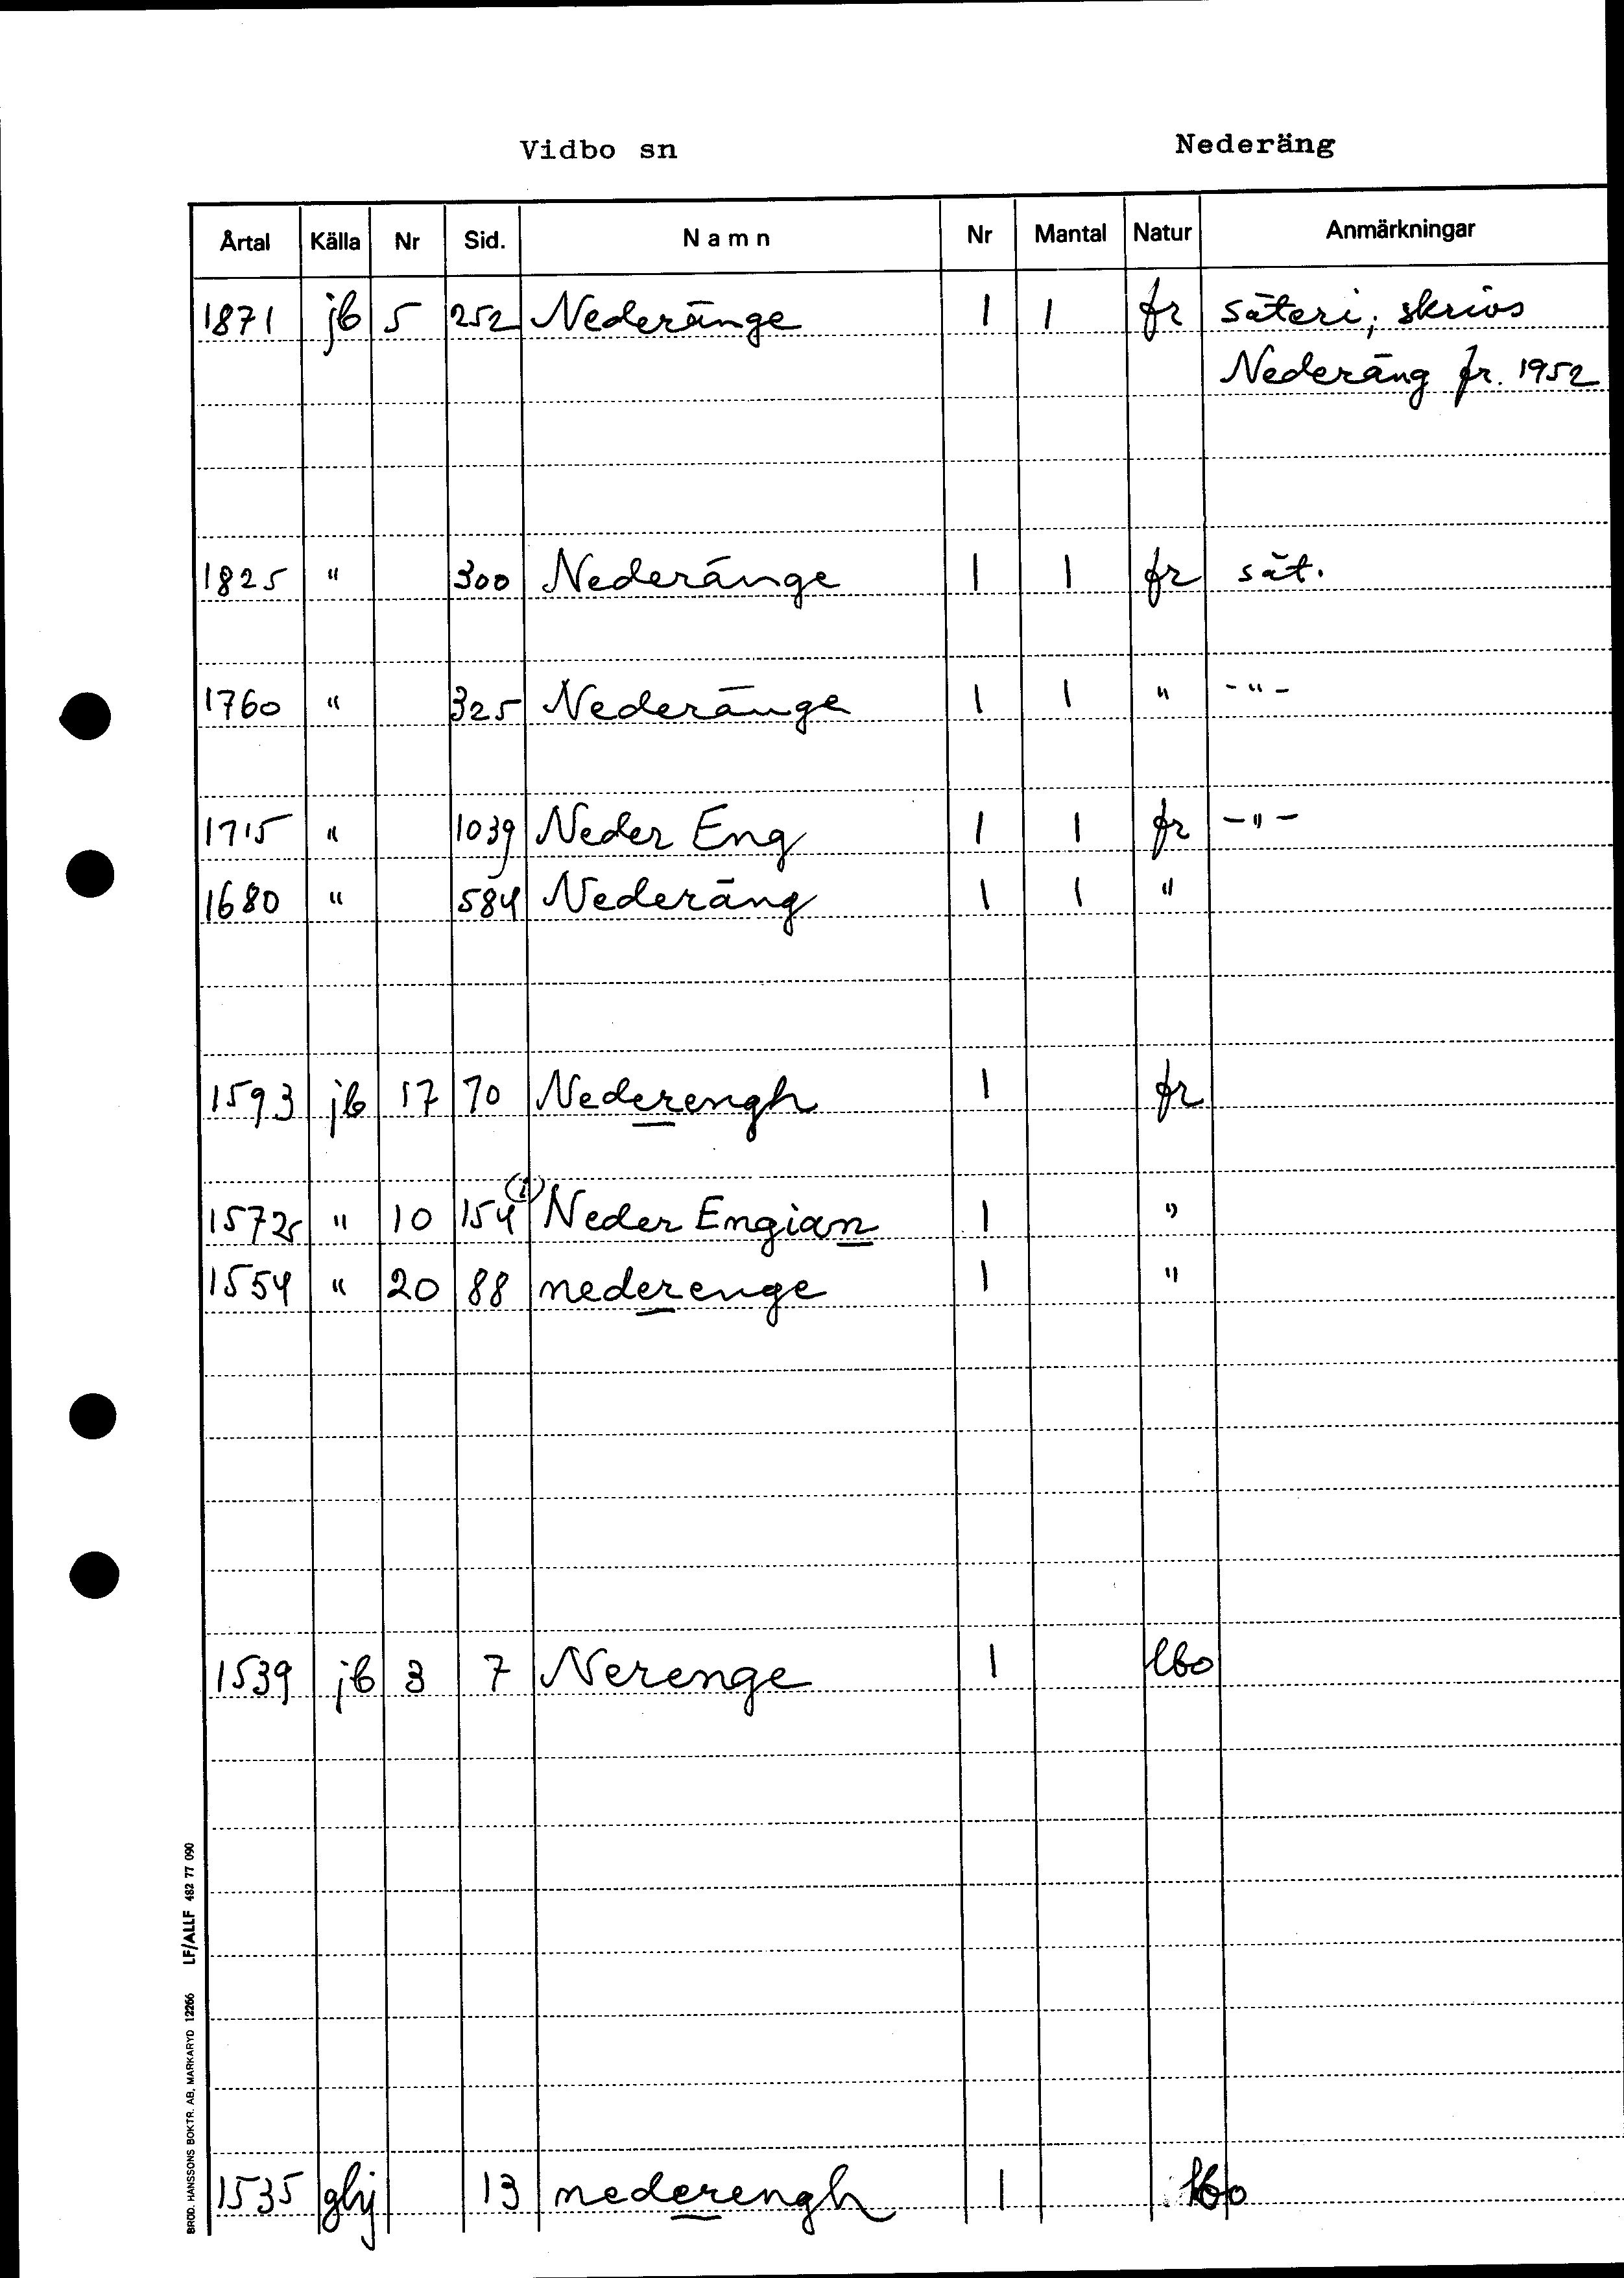 Vidbo sn Nederäng
Årtal Källa Nr Sid. Namn Nr Mantal Natur Anmärkningar
1871 jb 5 252 Nederänge 1 1 fr säteri; skrivs
Nederäng fr. 1952
1825 " 300 Nederänge 1 1 fr sät.
1760 " 325 Nederänge 1 1 " -"-
1715 " 1039 Neder Eng 1 1 fr -"-
1680 " 584 Nederäng 1 1 "
1593 jb 17 70 Nederengh 1 fr
(i)
" 10 154 Neder Engian 1 "
1554 " 20 88 nederenge 1 "
1539 jb 3 7 Nerenge 1 lbo
1535 ghj 13 nederengh 1 lbo
BROD. HANSSONS BOKTR. AB, MARKARYD 12266 LF/ALLF 482 77 090